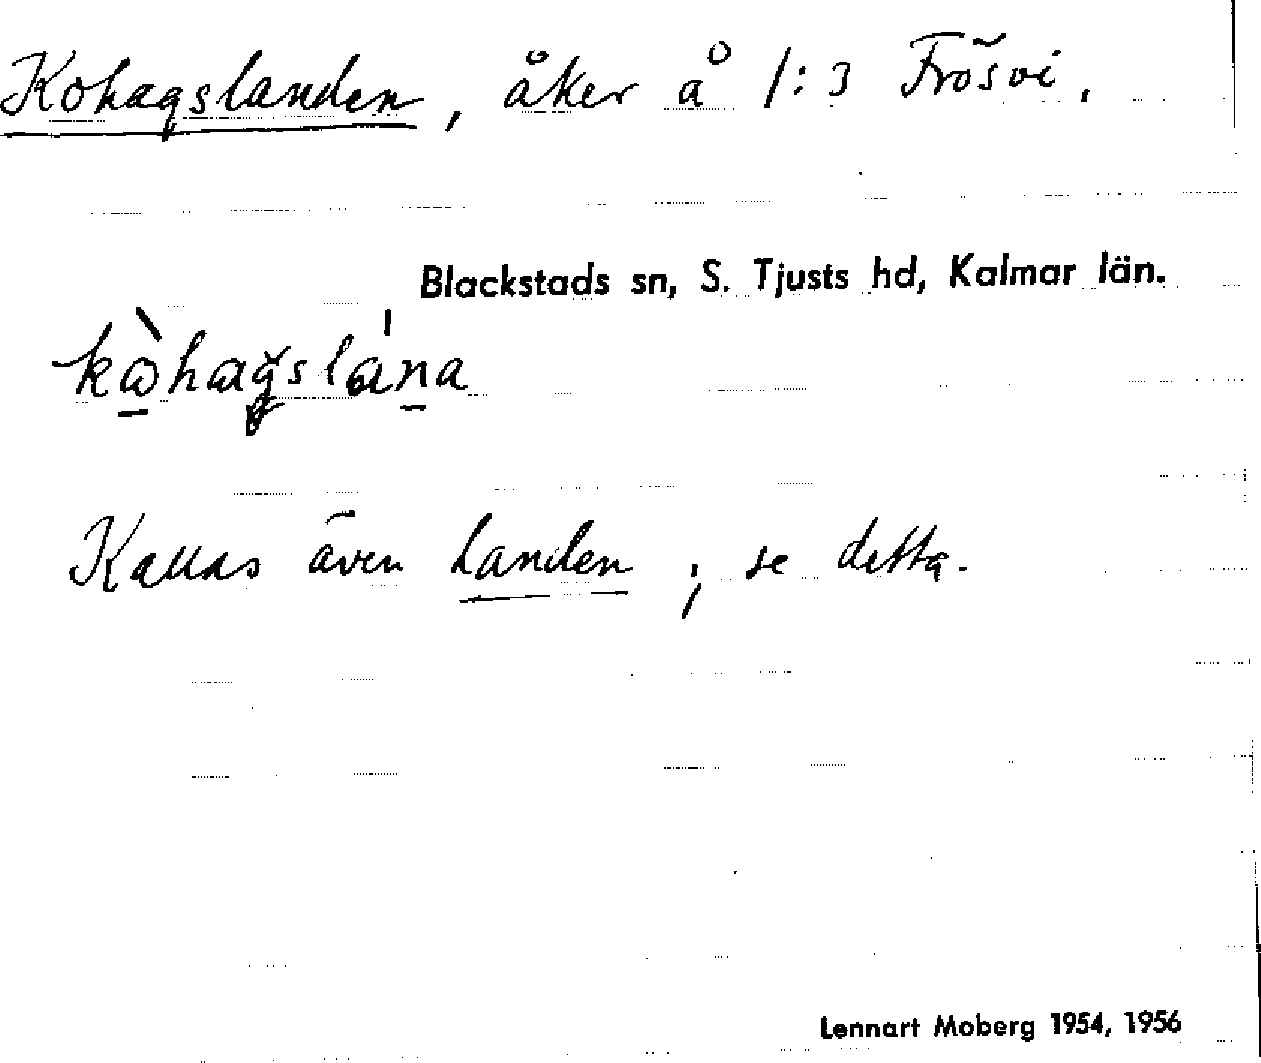 Kohagslanden, åker å 1:3 Frösvi.
Blackstads sn, S. Tjusts hd, Kalmar län.
Kallas även Landen; se detta.
Lennart Moberg 1954, 1956